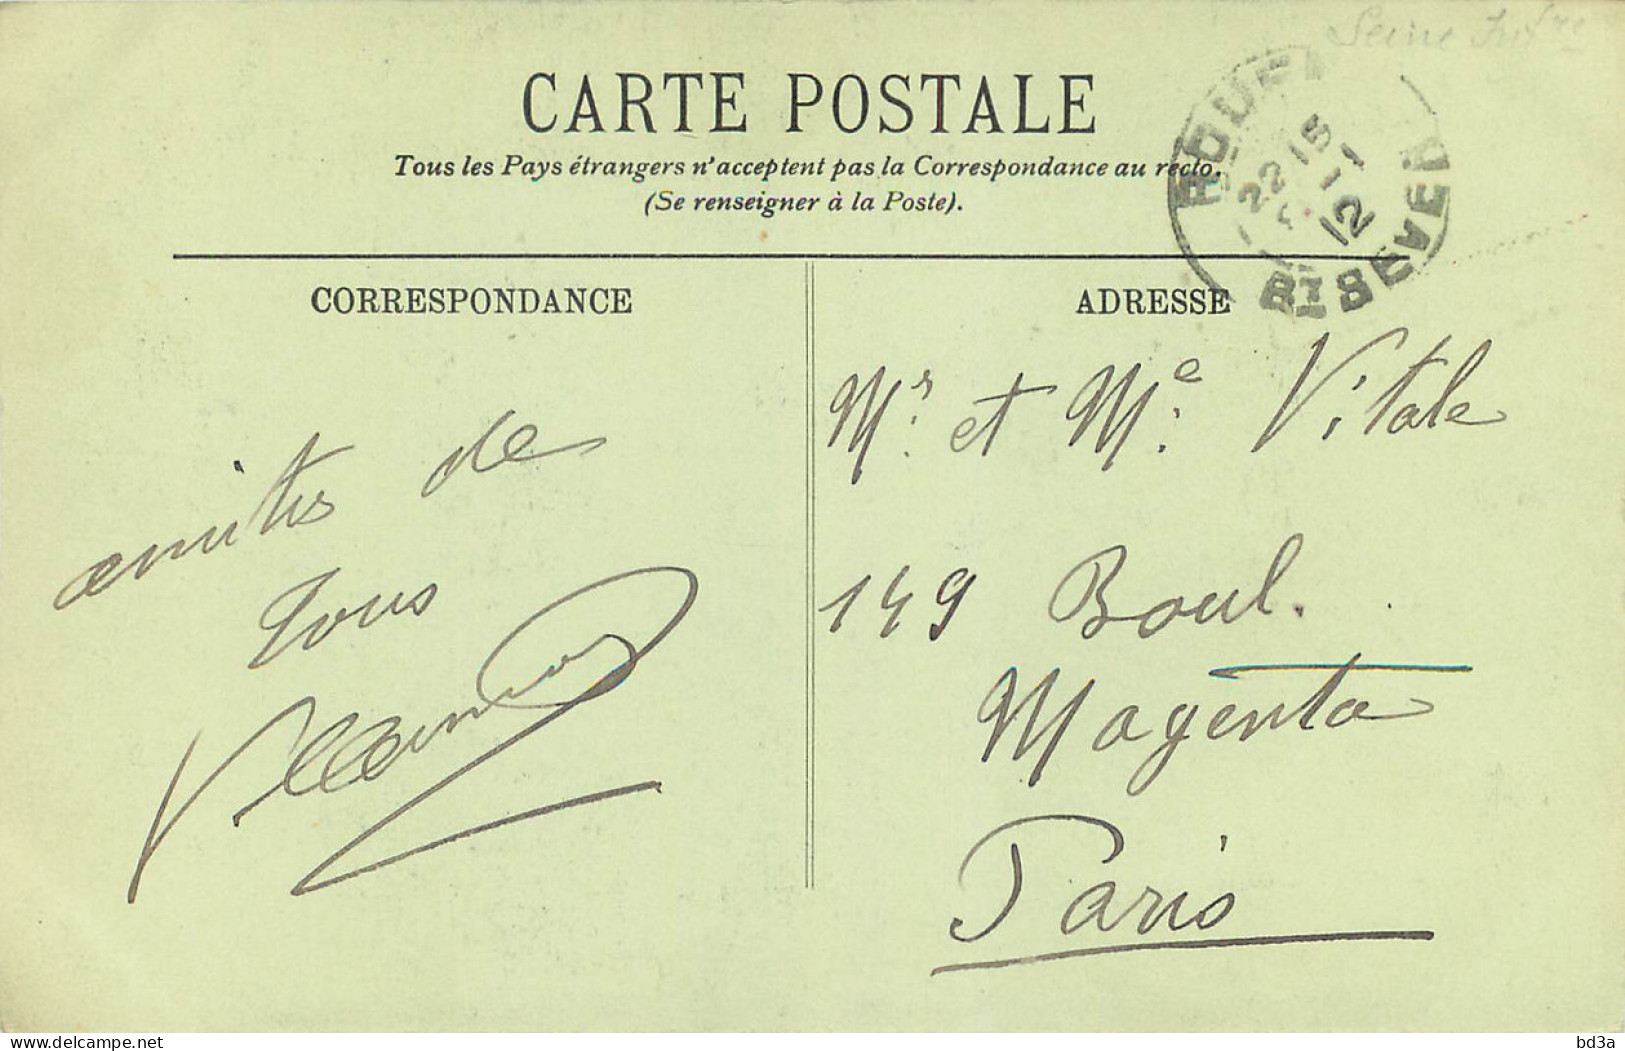 Seine Infre
CARTE POSTALE
Tous les Pays étrangers n'acceptent pas la Correspondance au recto.
(Se renseigner à la Poste).
ROUEN
22 15
11
12
RT SEVER
CORRESPONDANCE
ADRESSE
amitiés de
tous
Mr. et Me. Vitale
149 Boul.
Magenta
Paris
delcampe.net
bd3a